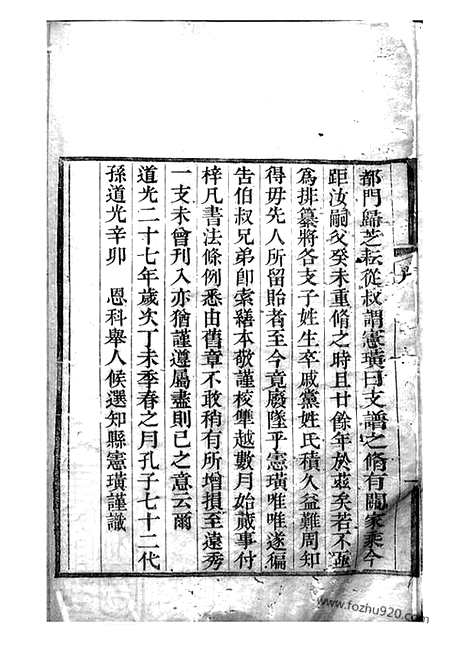 都門歸芝耘從叔謂憲璜曰支譜之脩有關家乘今
距汝嗣父癸未重脩之時且廿餘年於茲矣若不亟
爲排纂將各支子姓生卒戚黨姓氏積久益難周知
得毋先人所留貽者至今竟廢墜乎憲璜唯唯遂徧
告伯叔兄弟卽索繕本敬謹校讐越數月始蕆事付
梓凡書法條例悉由舊章不敢稍有所增損至遠秀
一支未曾刊入亦猶謹遵屬盡則已之意云爾
道光二十七年歲次丁未季春之月孔子七十二代
孫道光辛卯 恩科舉人候選知縣憲璜謹識
www.fozhu920.com